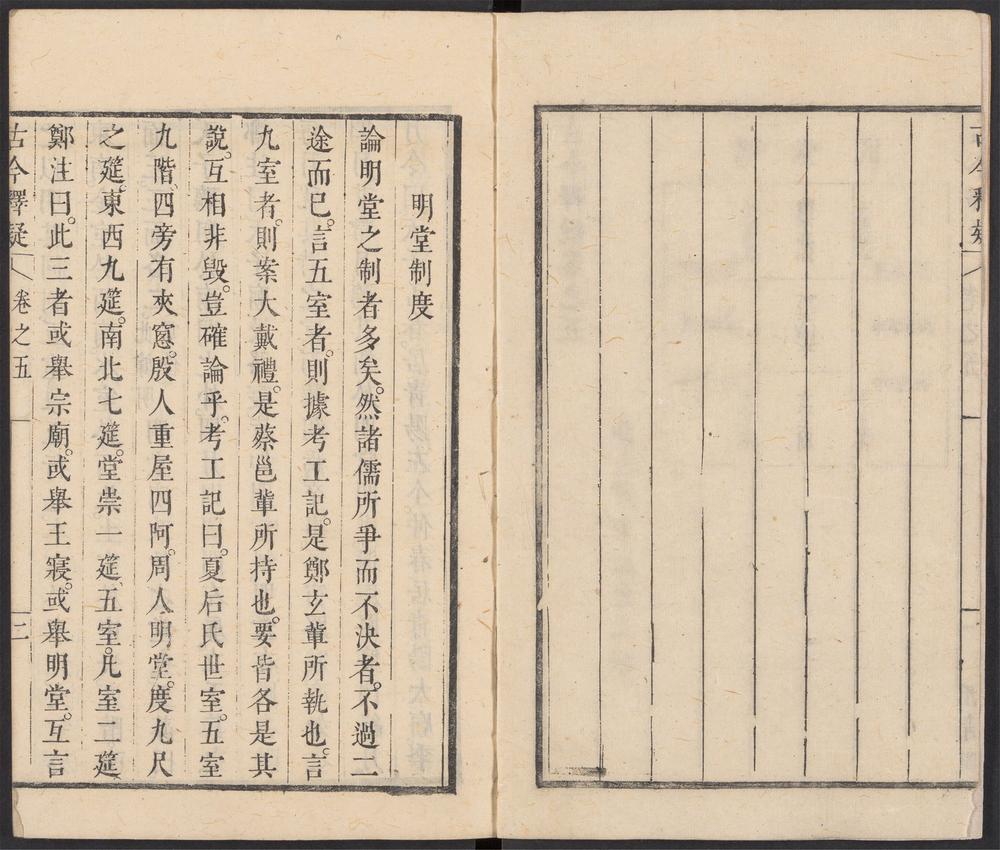 古今釋疑
明堂制度
論明堂之制者多矣。然諸儒所爭而不決者。不過二
途而已。言五室者。則據考工記。是鄭玄輩所執也。言
九室者。則案大戴禮。是蔡邕輩所持也。要皆各是其
說。互相非毀。豈確論乎。考工記曰。夏后氏世室。五室
九階。四旁有夾窻。殷人重屋四阿。周人明堂。度九尺
之筵。東西九筵。南北七筵。堂崇一筵。五室。凡室二筵
鄭注曰。此三者或舉宗廟。或舉王寢。或舉明堂。互言
古今釋疑 卷之五 二